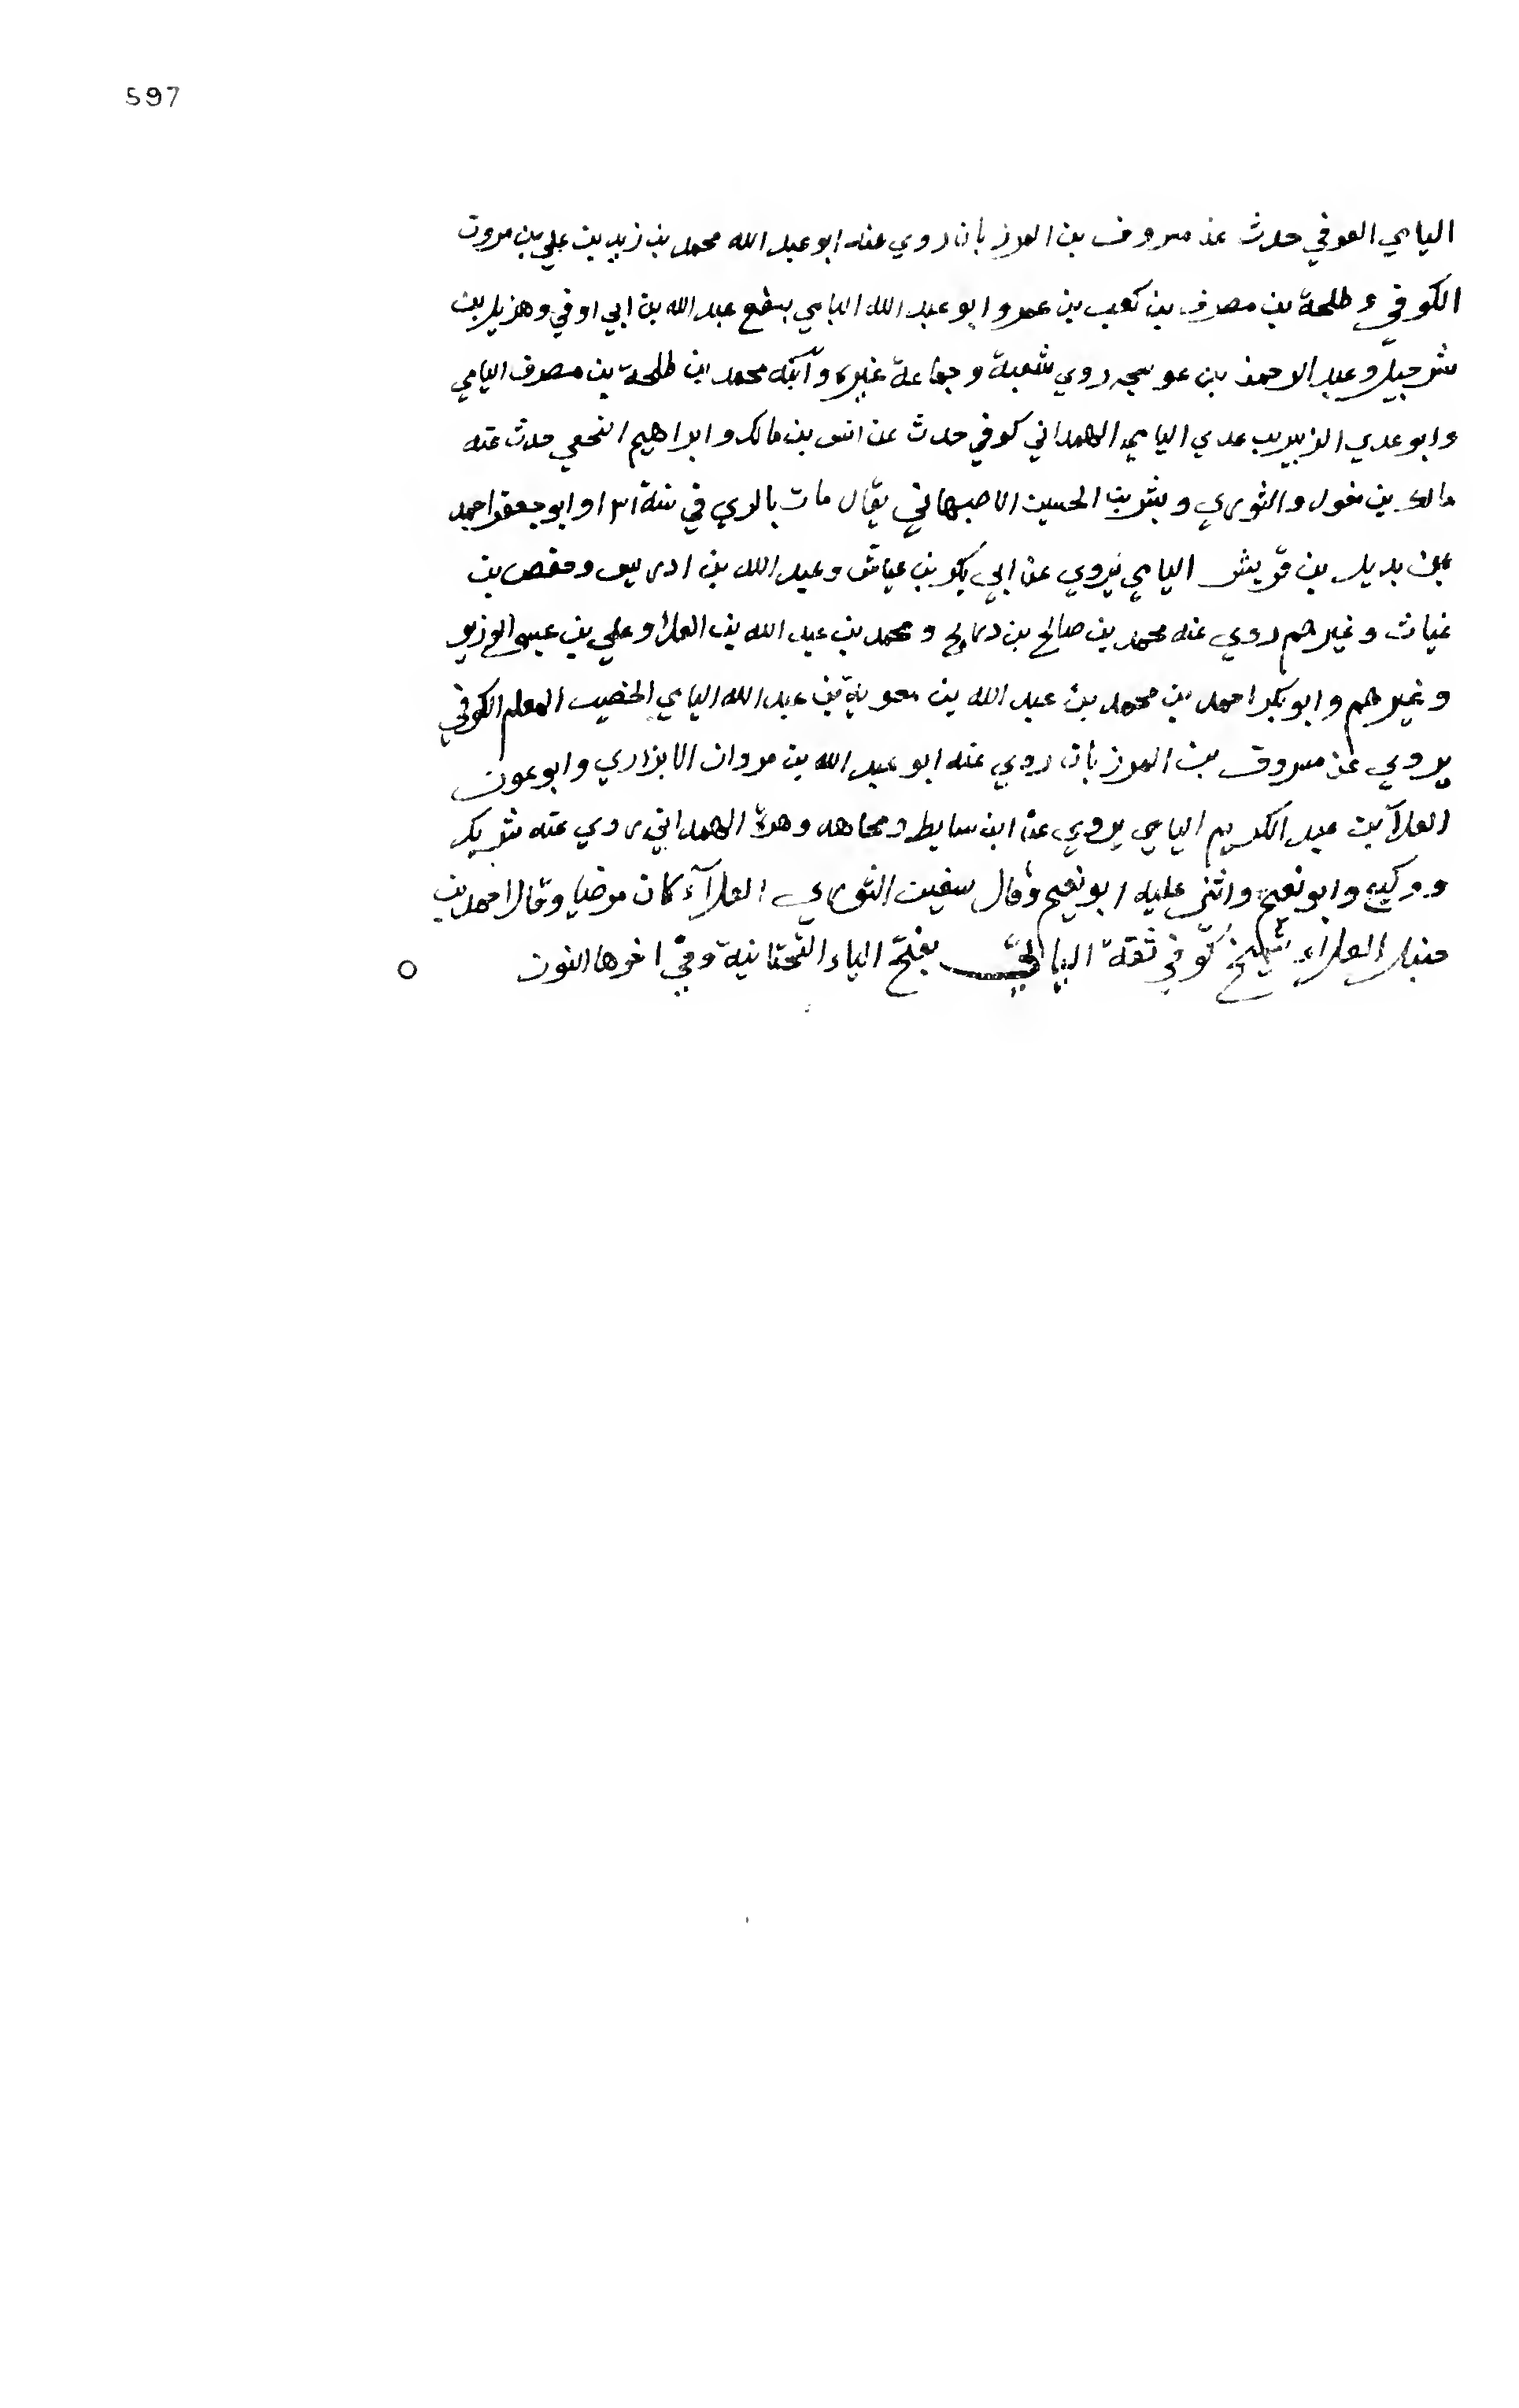 597
اليامي العوفي حدث عن مسروف بن المرزبان روي عنه ابو عبد الله محمد بن زيد بن علي بن مروت
الكوفي و طلحة بن مصرف بن كعب بن عمرو ابو عبد الله اليامي يسمع عبد الله بن ابي اوفي وهزيل بن
شرحبيل وعبد الرحمن بن عوسجه روي شعبة وجماعة غيره وابنه محمد بن طلحة بن مصرف اليامي
وابو عدي الزبير بن عدي اليامي الهمداني كوفي حدث عن انس بن مالك وابراهيم النخعي حدث عنه
مالك بن مغول والثوري وبشر بن الحسين الاصبهاني يقال مات بالري في سنة ١٣١ وابو جعفر احمد
بن بديل بن قريش اليامي يروي عن ابي بكر بن عياش وعبد الله بن ادريس وحفص بن
غياث وغيرهم روي عنه محمد بن صالح بن ذريح ومحمد بن عبد الله بن العلاء وعلي بن عيسى الوزير
وغيرهم وابو بكر احمد بن محمد بن عبد الله بن معوية بن عبد الله اليامي الخضيب المعلم الكوفي
يروي عن مسروق بن المرزبان روي عنه ابو عبد الله بن مروان الابزاري وابو عون
العلآ بن عبد الكريم اليامي يروي عن ابن سابط ومجاهد ومرة الهمداني روي عنه شريك
و وكيع وابو نعيم واثنى عليه ابو نعيم وقال سفين الثوري العلآء كان مرضيا وقال احمد بن
حنبل العلاء شيخ كوفي ثقة اليا بفتح الياء التحتانية وفي اخرها النون